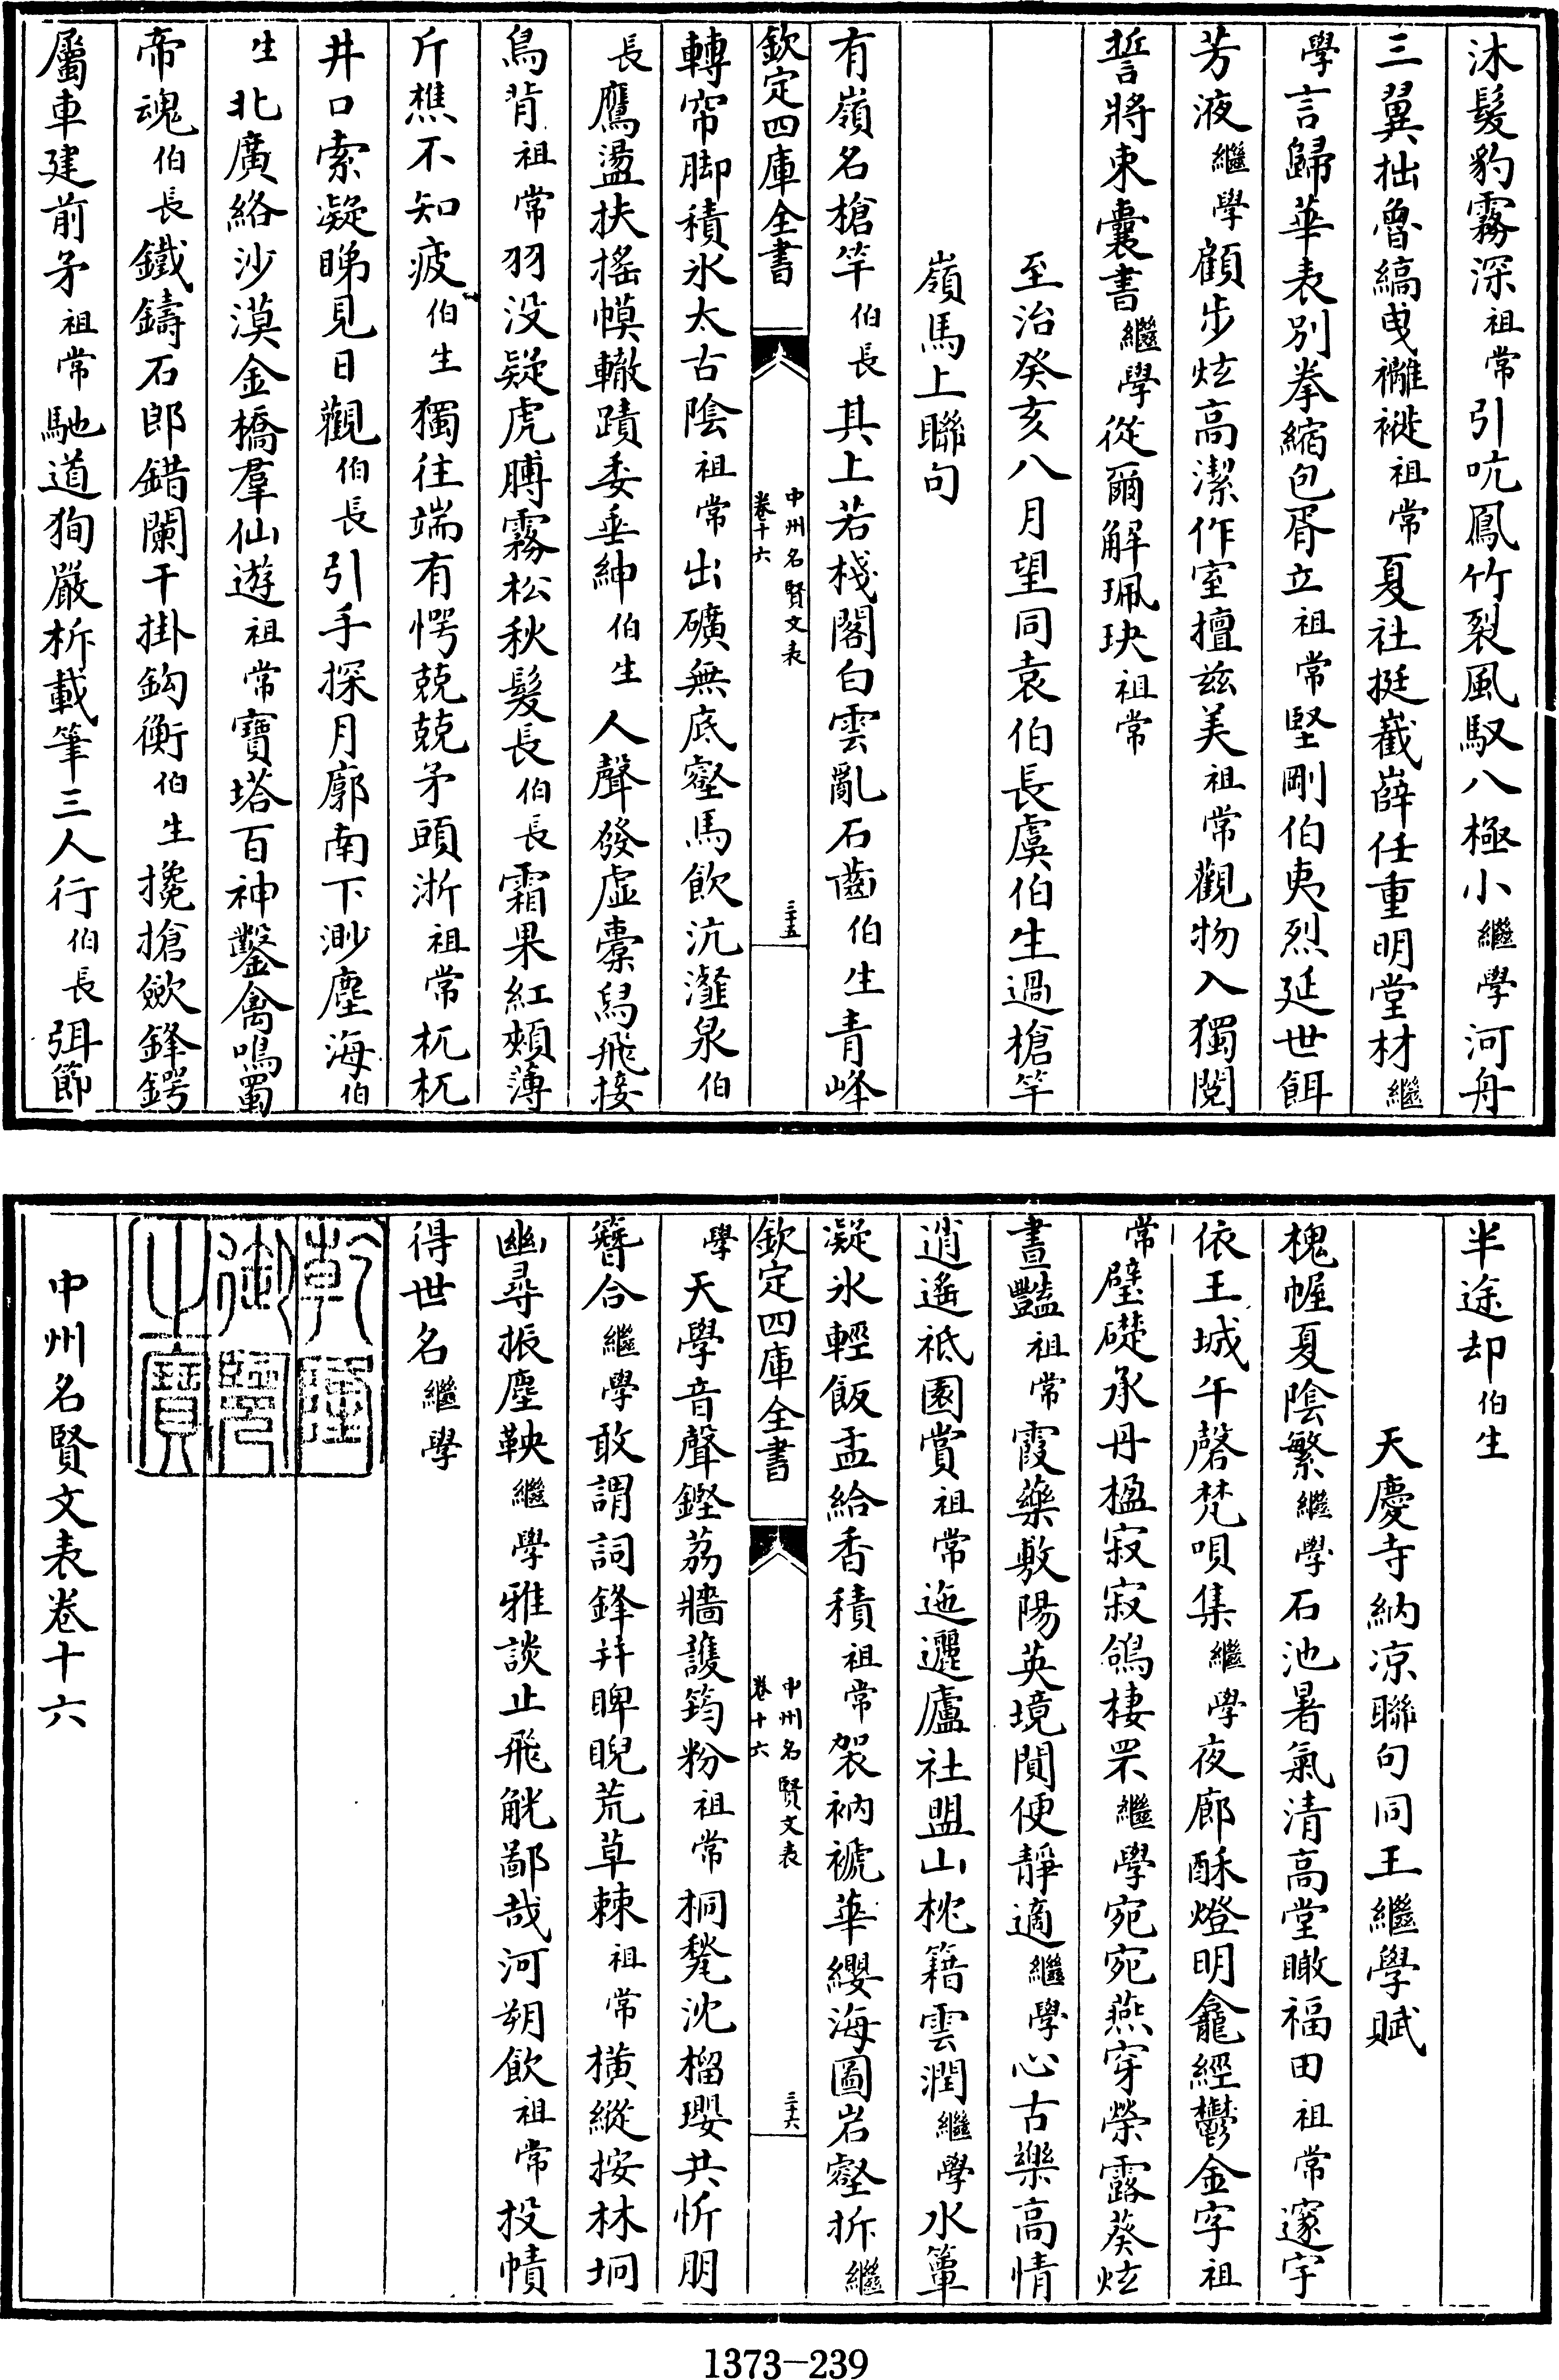 沐髮豹霧深祖常引吭鳳竹裂風馭八極小繼學河舟
三翼拙魯縞曳襳褷祖常夏社挺嶻嶭任重明堂材繼
學言歸華表別拳縮包胥立祖常堅剛伯夷烈延世餌
芳液繼學顧步炫高潔作室擅兹美祖常觀物入獨閱
誓將束囊書繼學從爾解珮玦祖常
至治癸亥八月望同袁伯長虞伯生過槍竿
嶺馬上聯句
有嶺名槍竿伯長其上若棧閣白雲亂石齒伯生青峰
欽定四庫全書
中州名賢文表
卷十六
三十五
轉帘脚積氷太古陰祖常出礦無底壑馬飲沆瀣泉伯
長鷹盪扶搖幙轍蹟委垂紳伯生人聲發虛橐舄飛接
鳥背祖常羽没疑虎膊霧松秋髮長伯長霜果紅頰薄
斤樵不知疲伯生獨往端有愕兢兢矛頭淅祖常杌杌
井口索凝睇見日觀伯長引手探月廓南下渺塵海伯
生北廣絡沙漠金橋羣仙遊祖常寶塔百神鑿禽鳴蜀
帝魂伯長鐵鑄石郎錯闌干掛鈎衡伯生攙搶歛鋒鍔
屬車建前矛祖常馳道狥嚴柝載筆三人行伯長弭節
半途却伯生
天慶寺納凉聯句同王繼學賦
槐幄夏陰繁繼學石池暑氣清高堂瞰福田祖常邃宇
依王城午磬梵唄集繼學夜廊酥燈明龕經鬱金字祖
常璧礎承丹楹寂寂鴿棲罘繼學宛宛燕穿榮露葵炫
晝豔祖常霞藥敷陽英境閴便靜適繼學心古樂高情
逍遙祗園賞祖常迤邐廬社盟山枕籍雲潤繼學水簟
凝氷輕飯盂給香積祖常袈衲褫華纓海圖岩壑拆繼
欽定四庫全書
中州名賢文表
卷十六
三十六
學天學音聲鏗茘牆護筠粉祖常桐甃沈榴瓔共忻朋
簪合繼學敢謂詞鋒并睥睨荒草棘祖常横縱按林坰
幽尋振塵鞅繼學雅談止飛觥鄙哉河朔飲祖常投幘
得世名繼學
乾隆
御覽
之寶
中州名賢文表卷十六
1373—239